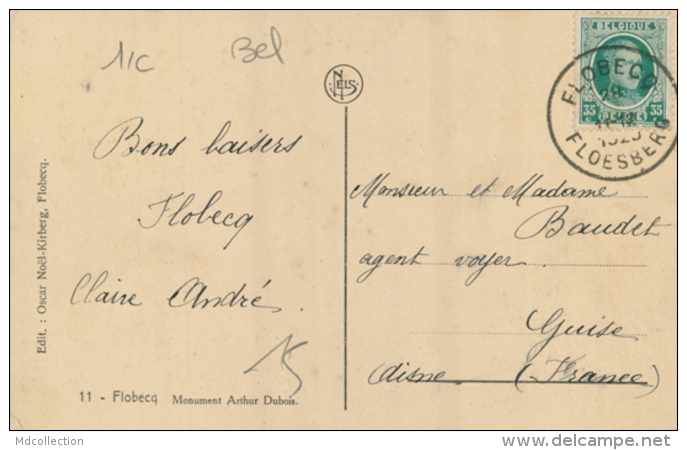 11c Bel
NELS
BELGIQUE
35 35
BELGIË
FLOBECQ
28
11-12
FLOESBERG
Bons baisers
Flobecq
Claire André.
Monsieur et Madame
Baudet
agent voyer
Guise
Aisne (France)
15
Edit. : Oscar Noël-Kirberg, Flobecq.
11 - Flobecq Monument Arthur Dubois.
Mdcollection
www.delcampe.net